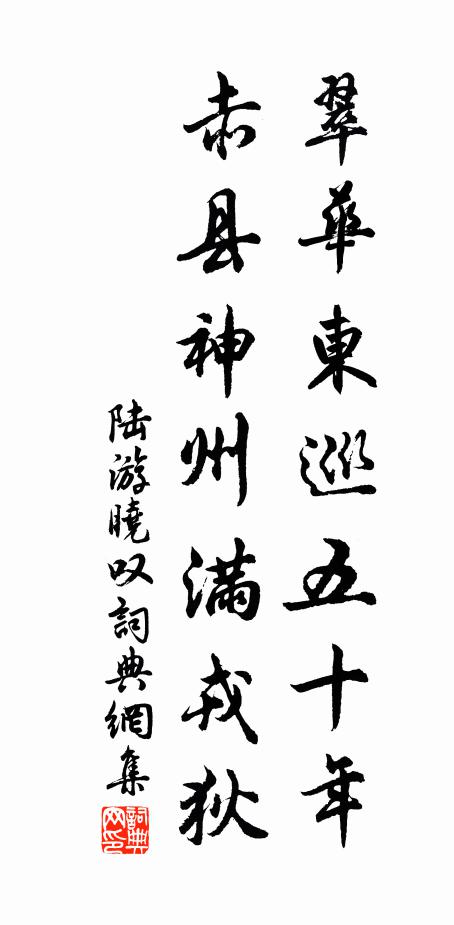 翠華東巡五十年
赤县神州满戎狄
陆游曉叹詞典網集
詞典网印